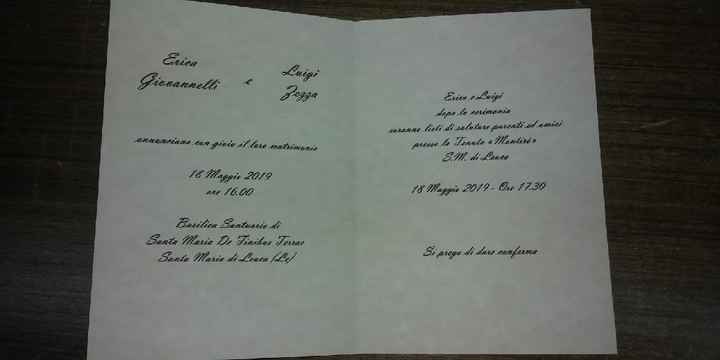 Erica
Giovannelli
e
Luigi
Zezza
annunciano con gioia il loro matrimonio
18 Maggio 2019
ore 16.00
Basilica Santuario di
Santa Maria De Finibus Terrae
Santa Maria di Leuca (Le)
Erica e Luigi
dopo la cerimonia
saranno lieti di salutare parenti ed amici
presso la Tenuta «Montirò»
S.M. di Leuca
18 Maggio 2019 - Ore 17.30
Si prega di dare conferma